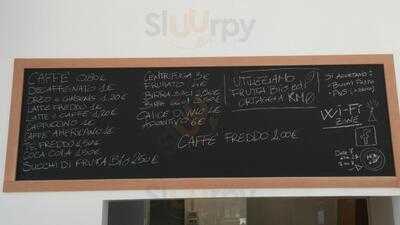 Sluurpy
CAFFE' 0,80€
DECAFFEINATO 1€
ORZO e GINSENG 1,20€
LATTE FREDDO 1€
LATTE e CAFFE' 1,20€
CAPPUCCINO 1€
CAFFE' AMERICANO 1€
TE FREDDO 2,50€
COCA COLA 2,50€
SUCCHI DI FRUTTA BIO 2,50€
CENTRIFUGA 5€
FRULLATO 4€
BIRRA
BIRRE
CALICE DI VINO
APERITIVO 6€
CAFFE FREDDO 1,00€
UTILIZZIAMO
FRUTTA BIO ED
ORTAGGIA KM 0
SI ACCETTANO:
BUONI PASTO
POS
Wi-Fi
ZONE